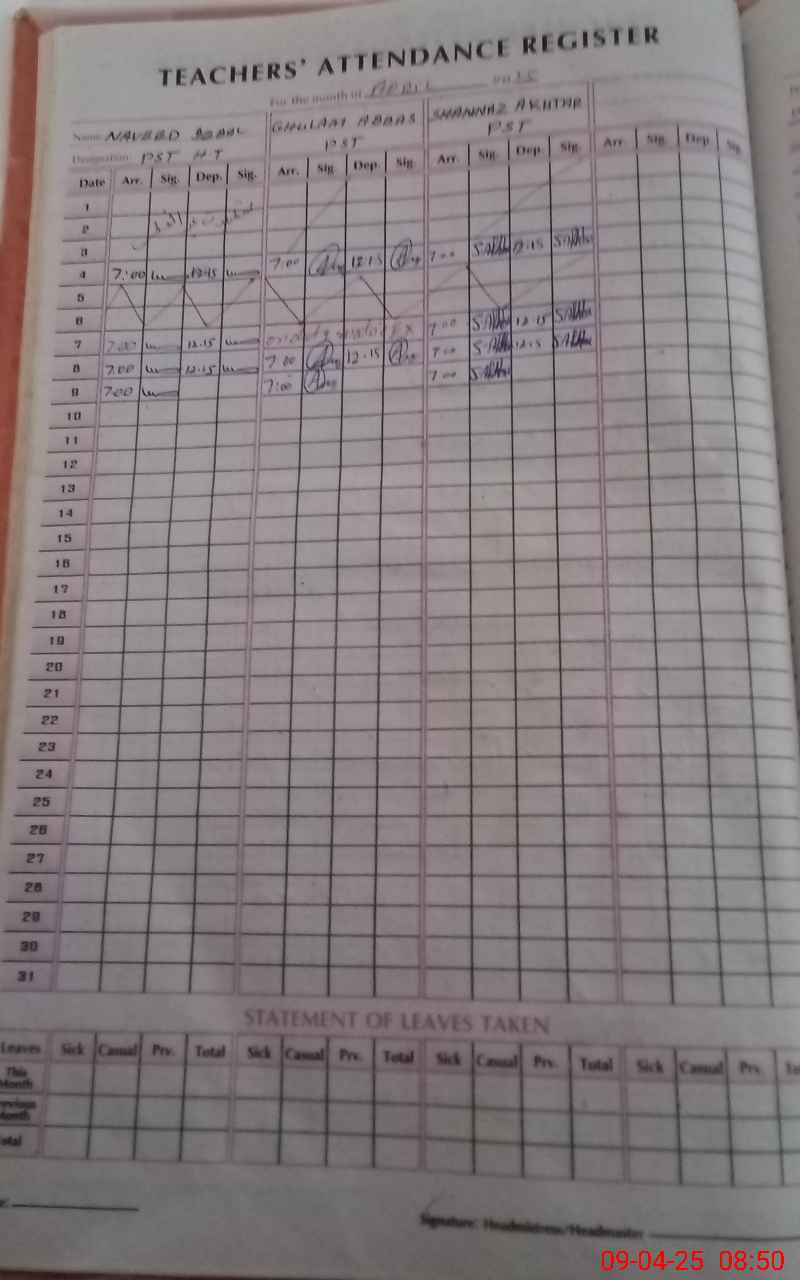 TEACHERS' ATTENDANCE REGISTER
For the month of APRIL 2025
Name NAVEED IQBAL GHULAM ABBAS SHAHNAZ AKHTAR
Designation PST H.T PST PST
Date Arr. Sig. Dep. Sig. Arr. Sig. Dep. Sig. Arr. Sig. Dep. Sig. Arr. Sig. Dep. Sig.
1
2
3
4 7:00 12.15 7:00 12.15 7:00 12.15
5
6
7 7:00 12.15 on duty 7:00 12.15
8 7:00 12.15 7:00 12.15 7:00 12.15
9 7:00 7:00 7:00
10
11
12
13
14
15
16
17
18
19
20
21
22
23
24
25
26
27
28
29
30
31
STATEMENT OF LEAVES TAKEN
Leaves Sick Casual Prv. Total Sick Casual Prv. Total Sick Casual Prv. Total Sick Casual Prv.
This Month
Previous Month
Total
Signature: Headmistress/Headmaster
09-04-25 08:50